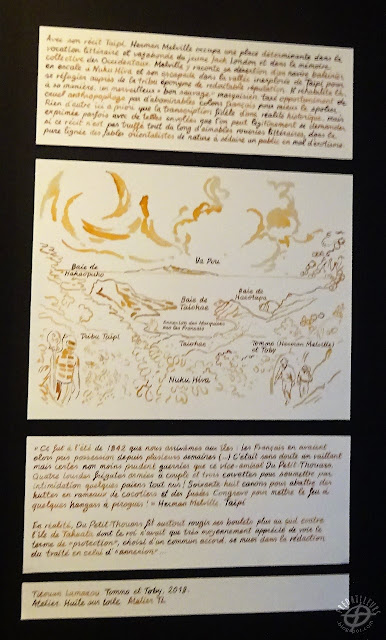 Avec son récit Taïpi, Herman Melville occupe une place déterminante dans la
vocation littéraire et vagabonde du jeune Jack London et dans la mémoire
collective des Occidentaux. Melville y raconte sa désertion d'un navire baleinier
en escale à Nuku Hiva et son escapade dans la vallée inexplorée de Taïpi pour
se réfugier auprès de la tribu éponyme de redoutable réputation. Il réhabilite là,
à sa manière, un merveilleux « bon sauvage » marquisien taxé opportunément de
cruel anthropophage par d'abominables colons français pour mieux le spolier.
Rien d'autre ici à priori que la transcription fidèle d'une réalité historique, mais
exprimée parfois avec de telles envolées que l'on peut légitimement se demander
si ce récit n'est pas truffé tout du long d'aimables rouéries littéraires, dans la
pure lignée des fables orientalistes de nature à séduire un public en mal d'exotisme.
Ua Pou
Baie de
Hakaopuko
Baie de
Taiohae
Baie de
Annexion des Marquises
par les Français
Taiohae
Tribu Taïpi
Tommo (Herman Melville)
et Toby
Nuku Hiva
« Ce fut à l'été de 1842 que nous arrivâmes aux îles ; les Français en avaient
alors pris possession depuis plusieurs semaines (...) C'était sans doute un vaillant
mais certes non moins prudent guerrier que ce vice-amiral Du Petit Thouars.
Quatre lourdes frégates armées à couple et trois corvettes pour soumettre par
intimidation quelques païens tout nus ! Soixante huit canons pour abattre des
huttes en rameaux de cocotiers et des fusées Congreve pour mettre le feu à
quelques hangars à pirogues ! » Herman Melville. Taïpi
En réalité, Du Petit Thouars fit surtout rougir ses boulets plus au sud contre
l'île de Tahuata dont le roi n'avait que très moyennement apprécié de voir le
terme de « protection », choisi d'un commun accord, se muer dans la rédaction
du traité en celui d'« annexion »...
Titouan Lamazou Tommo et Toby, 2018.
Atelier. Huile sur toile. Atelier
blogspot.com